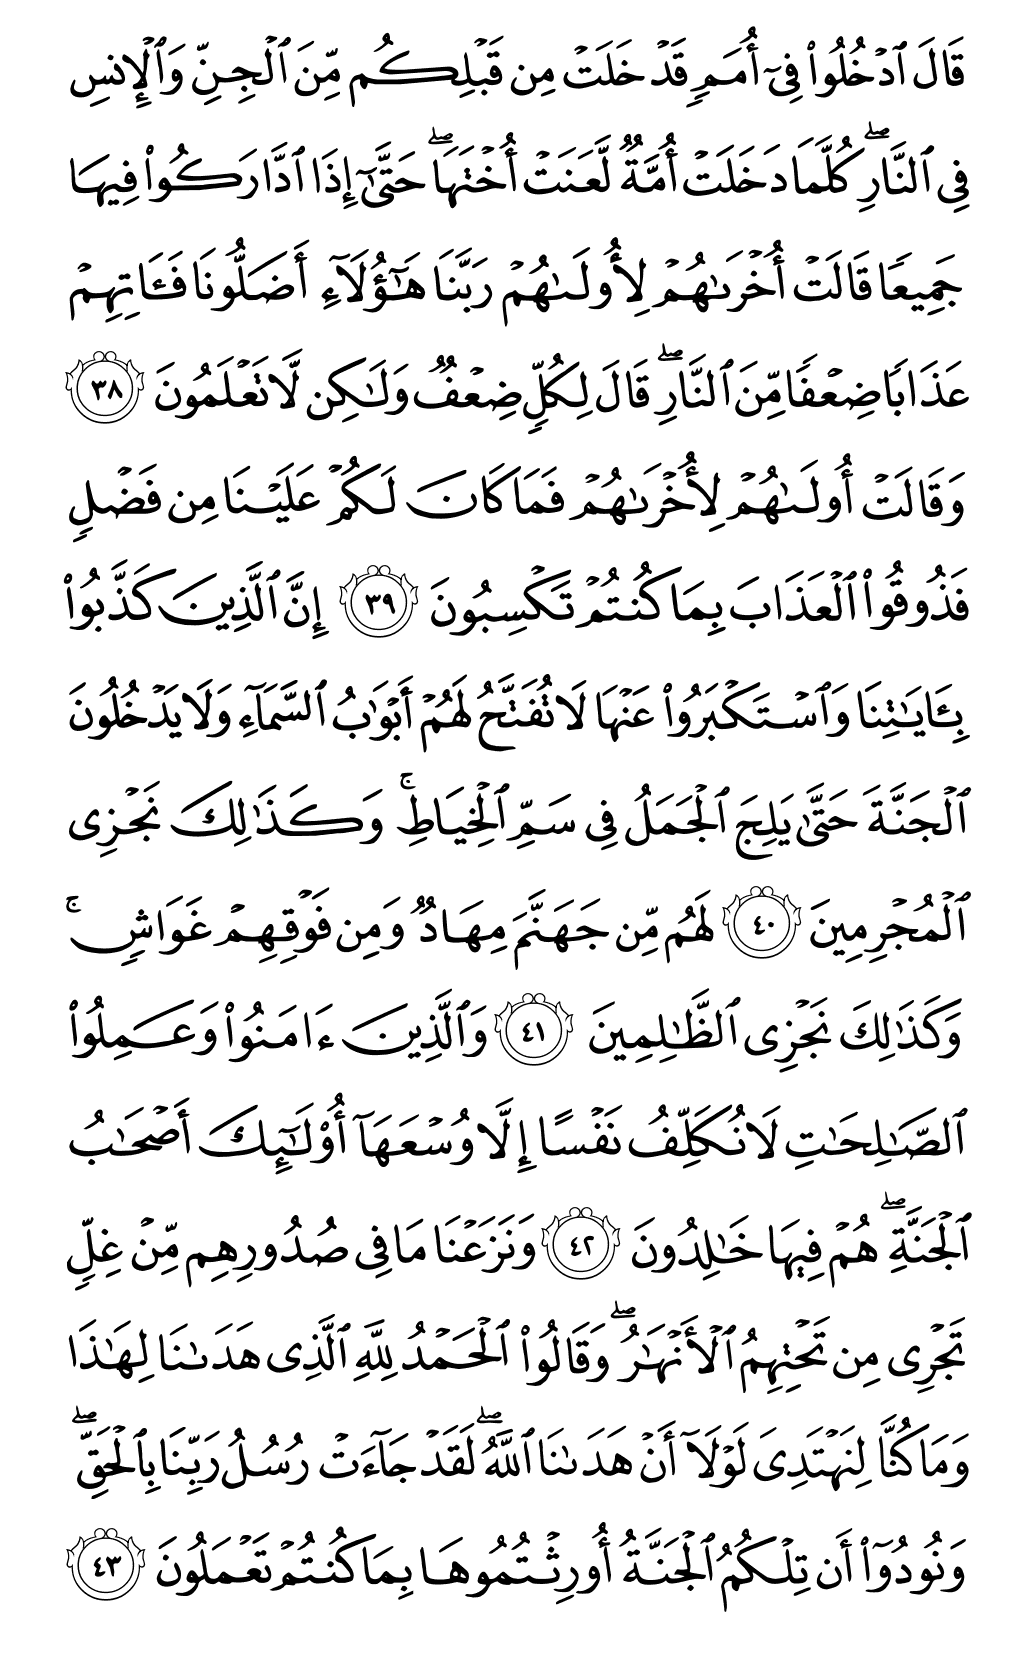 قَالَ ٱدۡخُلُواْ فِيٓ أُمَمٖ قَدۡ خَلَتۡ مِن قَبۡلِكُم مِّنَ ٱلۡجِنِّ وَٱلۡإِنسِ
فِي ٱلنَّارِۖ كُلَّمَا دَخَلَتۡ أُمَّةٞ لَّعَنَتۡ أُخۡتَهَاۖ حَتَّىٰٓ إِذَا ٱدَّارَكُواْ فِيهَا
جَمِيعٗا قَالَتۡ أُخۡرَىٰهُمۡ لِأُولَىٰهُمۡ رَبَّنَا هَٰٓؤُلَآءِ أَضَلُّونَا فَـَٔاتِهِمۡ
عَذَابٗا ضِعۡفٗا مِّنَ ٱلنَّارِۖ قَالَ لِكُلّٖ ضِعۡفٞ وَلَٰكِن لَّا تَعۡلَمُونَ ٣٨
وَقَالَتۡ أُولَىٰهُمۡ لِأُخۡرَىٰهُمۡ فَمَا كَانَ لَكُمۡ عَلَيۡنَا مِن فَضۡلٖ
فَذُوقُواْ ٱلۡعَذَابَ بِمَا كُنتُمۡ تَكۡسِبُونَ ٣٩ إِنَّ ٱلَّذِينَ كَذَّبُواْ
بِـَٔايَٰتِنَا وَٱسۡتَكۡبَرُواْ عَنۡهَا لَا تُفَتَّحُ لَهُمۡ أَبۡوَٰبُ ٱلسَّمَآءِ وَلَا يَدۡخُلُونَ
ٱلۡجَنَّةَ حَتَّىٰ يَلِجَ ٱلۡجَمَلُ فِي سَمِّ ٱلۡخِيَاطِۚ وَكَذَٰلِكَ نَجۡزِي
ٱلۡمُجۡرِمِينَ ٤٠ لَهُم مِّن جَهَنَّمَ مِهَادٞ وَمِن فَوۡقِهِمۡ غَوَاشٖۚ
وَكَذَٰلِكَ نَجۡزِي ٱلظَّٰلِمِينَ ٤١ وَٱلَّذِينَ ءَامَنُواْ وَعَمِلُواْ
ٱلصَّٰلِحَٰتِ لَا نُكَلِّفُ نَفۡسًا إِلَّا وُسۡعَهَآ أُوْلَٰٓئِكَ أَصۡحَٰبُ
ٱلۡجَنَّةِۖ هُمۡ فِيهَا خَٰلِدُونَ ٤٢ وَنَزَعۡنَا مَا فِي صُدُورِهِم مِّنۡ غِلّٖ
تَجۡرِي مِن تَحۡتِهِمُ ٱلۡأَنۡهَٰرُۖ وَقَالُواْ ٱلۡحَمۡدُ لِلَّهِ ٱلَّذِي هَدَىٰنَا لِهَٰذَا
وَمَا كُنَّا لِنَهۡتَدِيَ لَوۡلَآ أَنۡ هَدَىٰنَا ٱللَّهُۖ لَقَدۡ جَآءَتۡ رُسُلُ رَبِّنَا بِٱلۡحَقِّۖ
وَنُودُوٓاْ أَن تِلۡكُمُ ٱلۡجَنَّةُ أُورِثۡتُمُوهَا بِمَا كُنتُمۡ تَعۡمَلُونَ ٤٣